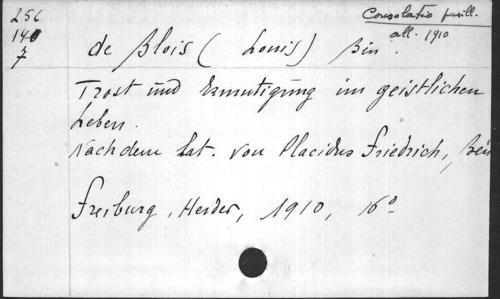 256
140
7
Consolatio pusill.
all. 1910
de Blois (Louis) Bén.
Trost und Ermutigung im geistlichen
Leben.
Nach dem Lat. von Placidus Friedrich, Bén
Freiburg, Herder, 1910, 16°